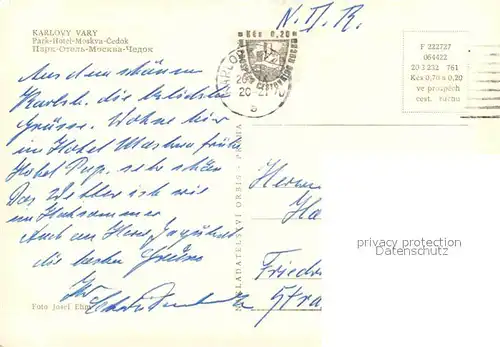 KARLOVY VARY
Park-Hotel-Moskva-Čedok
Парк-Отель-Москва-Чедок
N.D.R.
Kčs 0,20
F 222727
064422
20 3 232 761
Kčs 0,70 a 0,20
ve prospěch
cest. ruchu
Aus dem schönen
Karlsb. die herzlichsten
Grüsse. Wohne hier
im Hotel Moskva früher
Hotel Pup. sehr schön
Das Wetter ist wie
im Hochsommer
Auch an Herrn
die besten Grüsse
Ihr
NAKLADATELSTVÍ ORBIS PRAHA
Herrn
Ha
Friedr
Stra
privacy protection
Datenschutz
Foto Josef Ehm